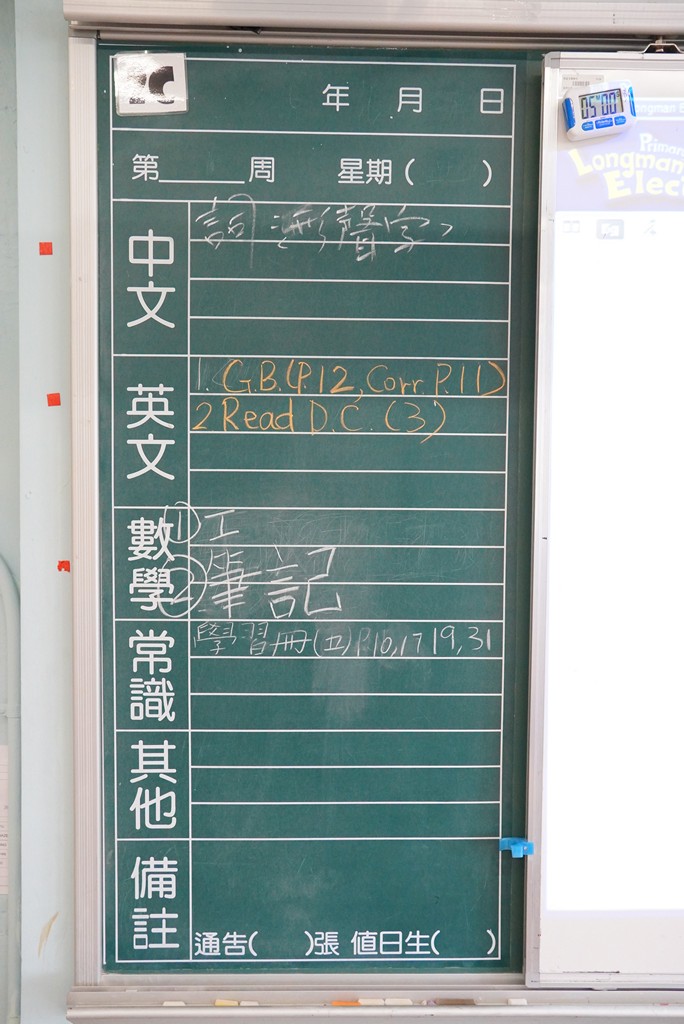 年 月 日
第______周 星期( )
中文
詞 形聲字
英文
1. G.B.(P.12, Corr. P.11)
2 Read D.C. (3)
數學
① 工
② 筆記
常識
學習冊(五)P.10,17 19,31
其他
備註
通告( )張 值日生( )
05 00
Longman E
Primar
Longman
Elec